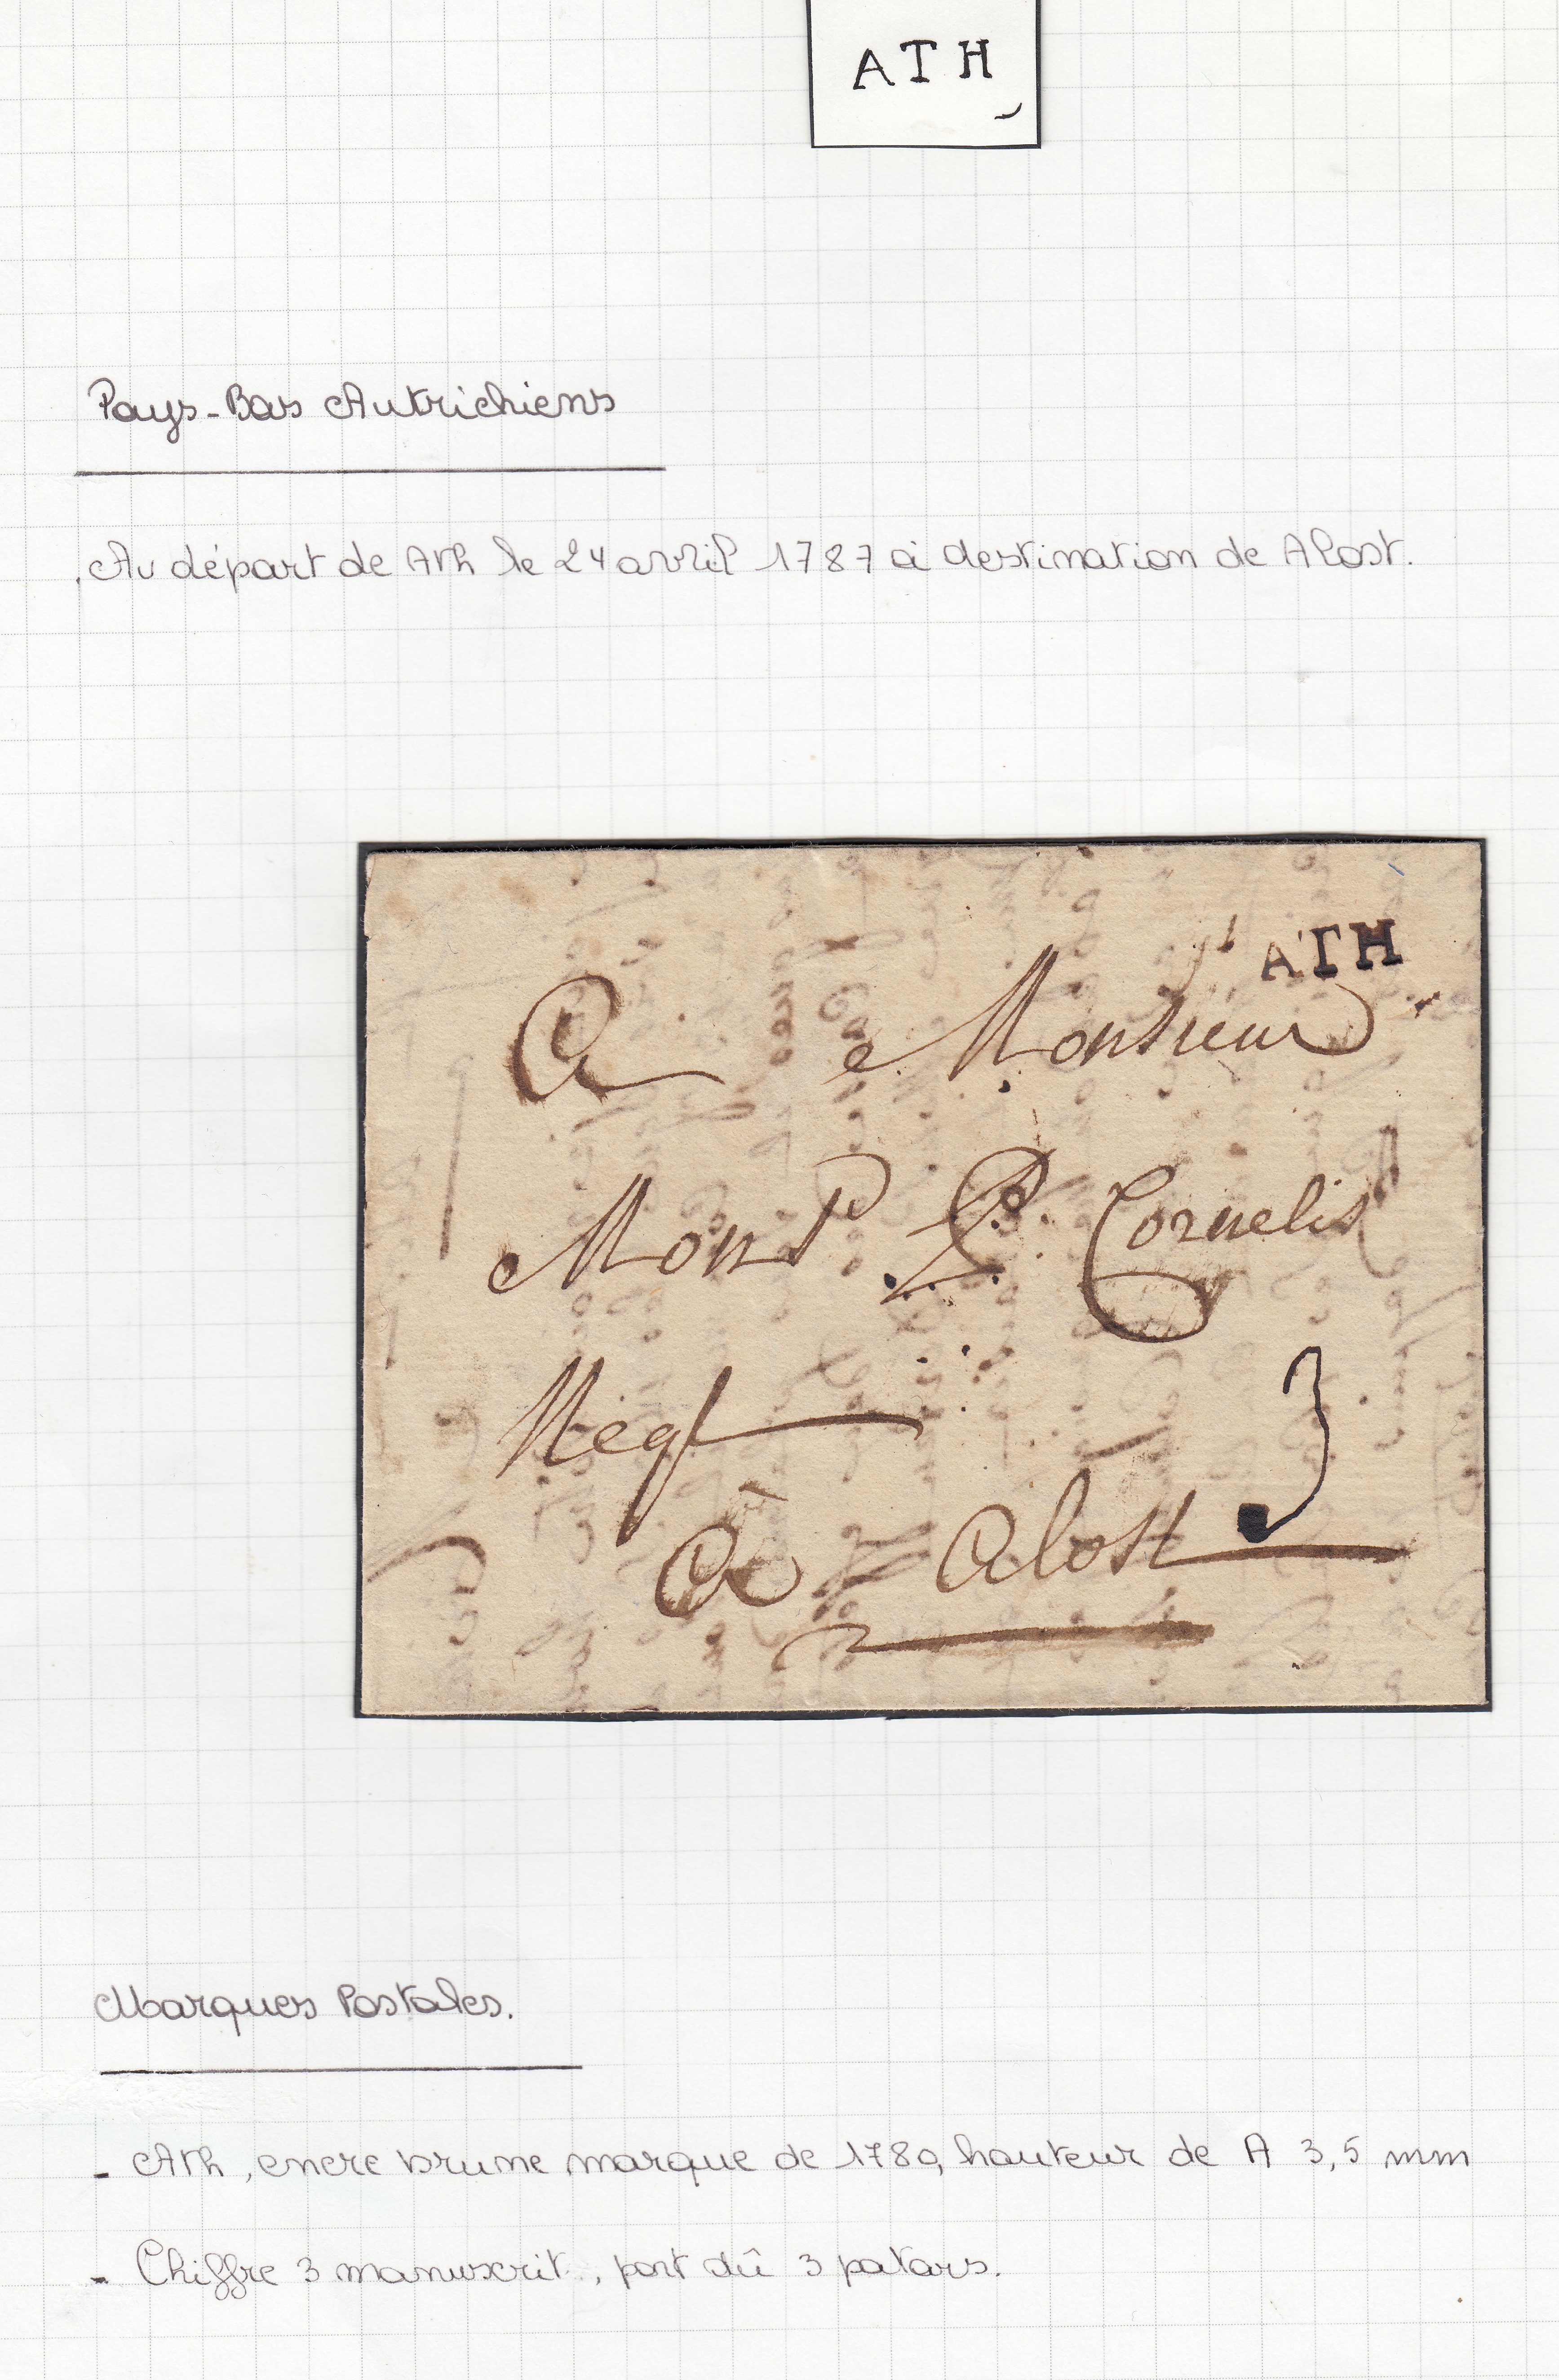 ATH
Pays-Bas Autrichiens
Au départ de Ath le 24 avril 1787 à destination de Alost.
ATH
A Monsieur
Mons P. Cornelis
Negt
à Alost
3
Marques Postales.
- Ath, encre brune marque de 1780, hauteur de A 3,5 mm
- Chiffre 3 manuscrit, port dû 3 patars.